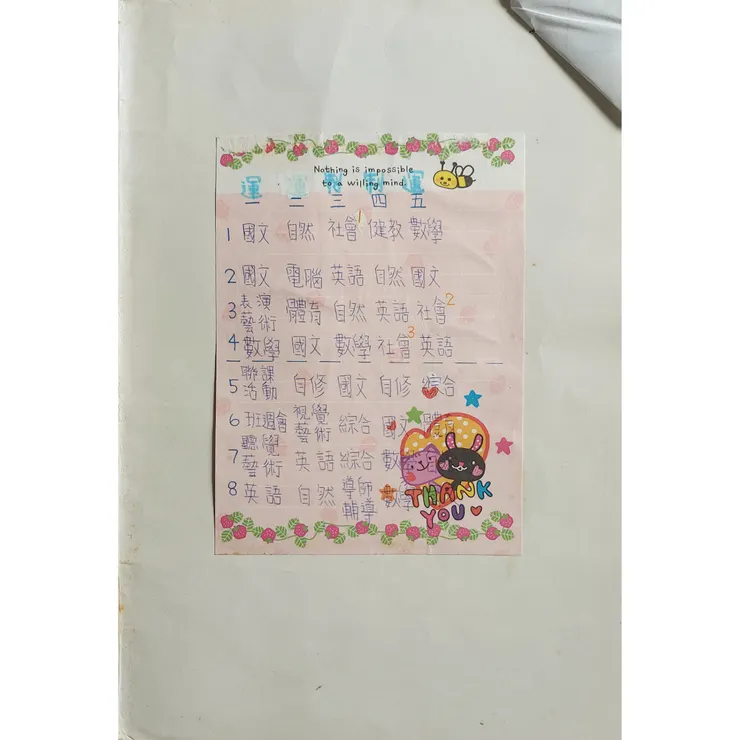 Nothing is impossible
to a willing mind.
運 運 制 制 運
一 二 三 四 五
1 國文 自然 社會1 健教 數學
2 國文 電腦 英語 自然 國文
3 表演藝術 體育 自然 英語 社會2
4 數學 國文 數學 社會3 英語
5 聯課活動 自修 國文 自修 綜合
6 班週會 視覺藝術 綜合 國文 體育
7 聽覺藝術 英語 綜合 數
8 英語 自然 導師輔導 數學
THANK
YOU